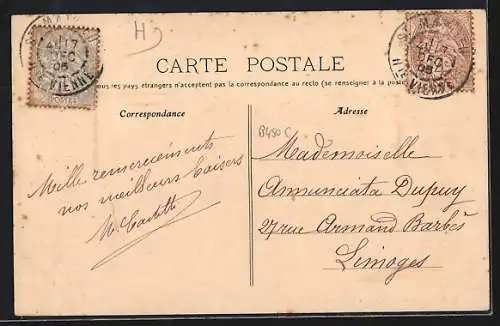 H
CARTE POSTALE
Tous les pays étrangers n'acceptent pas la correspondance au recto (se renseigner à la poste
Correspondance
Adresse
B450C
Mille remerciements
nos meilleurs baisers
Mademoiselle
Annunciata Dupuy
27 rue Armand Barbès
Limoges
HTE VIENNE
HTE VIENNE
POSTES